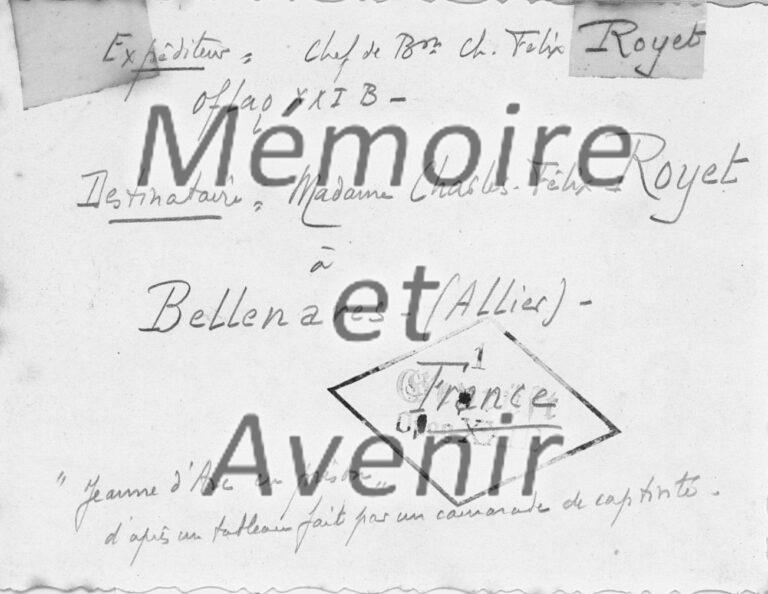 Expéditeur = Chef de Bon Ch. Félix Royet
Oflag XXI B -
Mémoire
Destinataire = Madame Charles-Félix Royet
à
et
Bellenaves - (Allier) -
1
France
Avenir
" Jeanne d'Arc en prison "
d'après un tableau fait par un camarade de captivité -